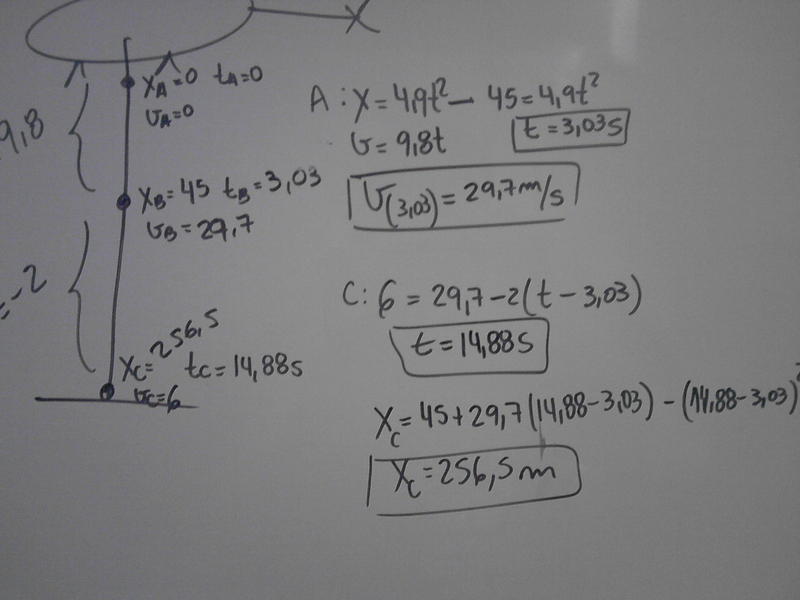 X
x_A=0 t_A=0
v_A=0
9,8
x_B=45 t_B=3,03
v_B=29,7
=-2
x_C=256,5
t_C=14,88s
v_C=6
A: x=4,9t² — 45=4,9t²
v=9,8t
t=3,03s
v(3,03)=29,7m/s
C: 6=29,7-2(t-3,03)
t=14,88s
X_C=45+29,7(14,88-3,03)-(14,88-3,03)²
X_C=256,5m